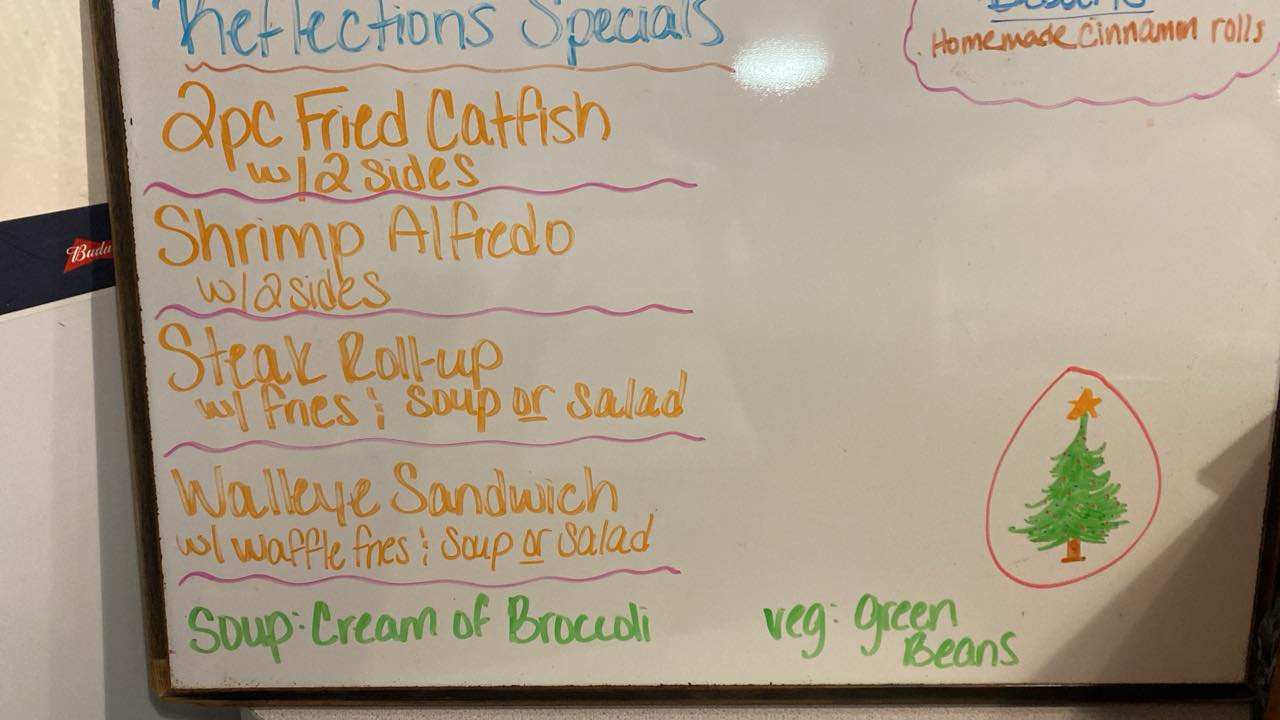 Reflections Specials
2pc Fried Catfish
w/2 sides
Shrimp Alfredo
w/2 sides
Steak Roll-up
w/ fries & soup or salad
Walleye Sandwich
w/ waffle fries & soup or salad
Soup: Cream of Broccoli
veg: green
Beans
Homemade Cinnamon rolls